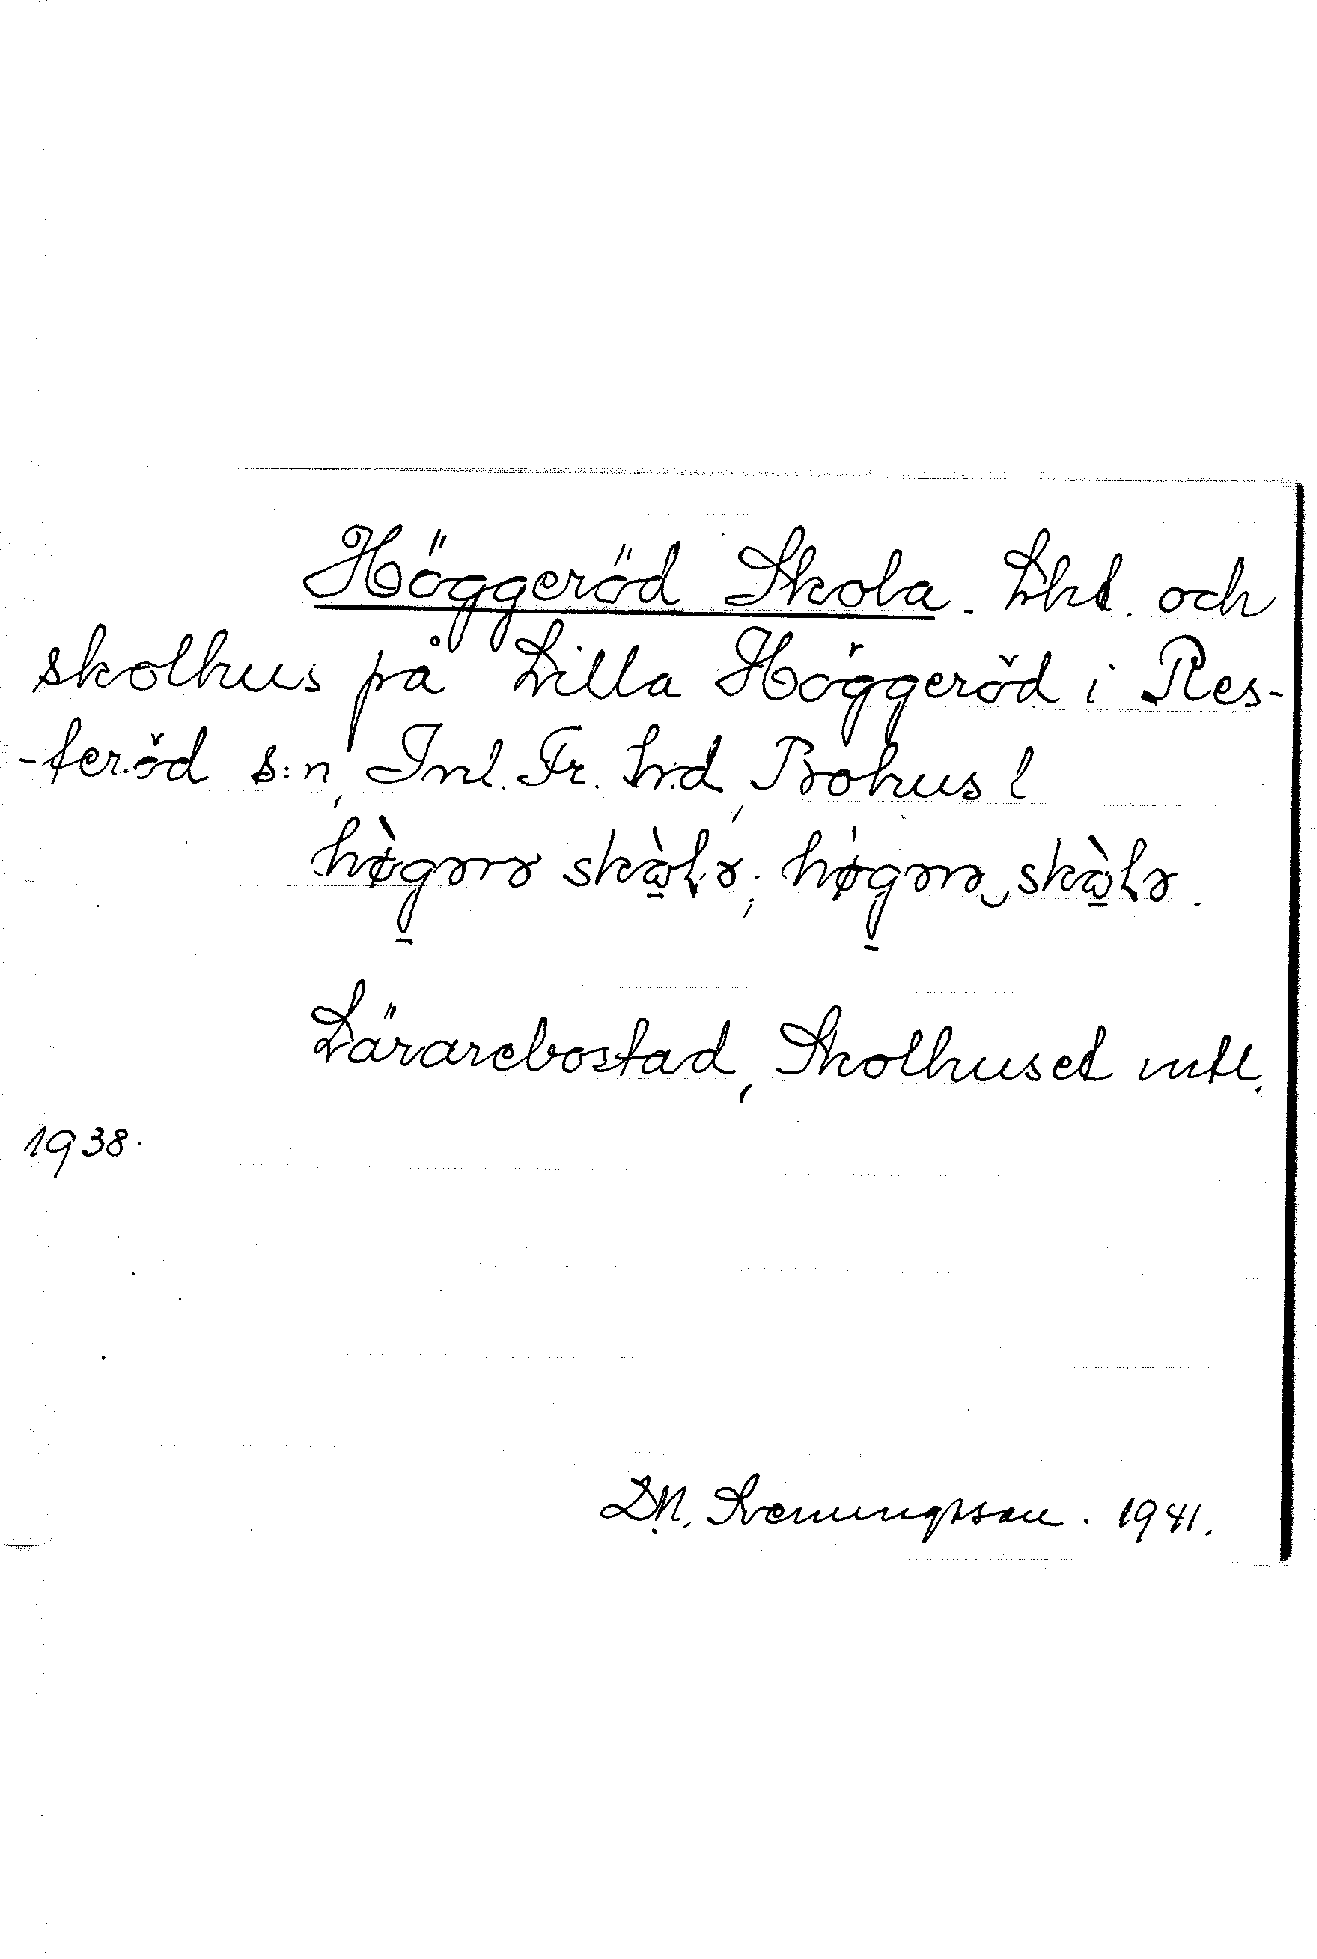 Höggeröd Skola. Lht. och
skolhus på Lilla Höggeröd i Res-
-teröd s:n, Inl. Fr. hd, Bohus l
hø̀gərə skὼlə; høgərə skὼlə.
Lärarebostad, Skolhuset mtl.
1938.
D.N. Svenungsson. 1941.